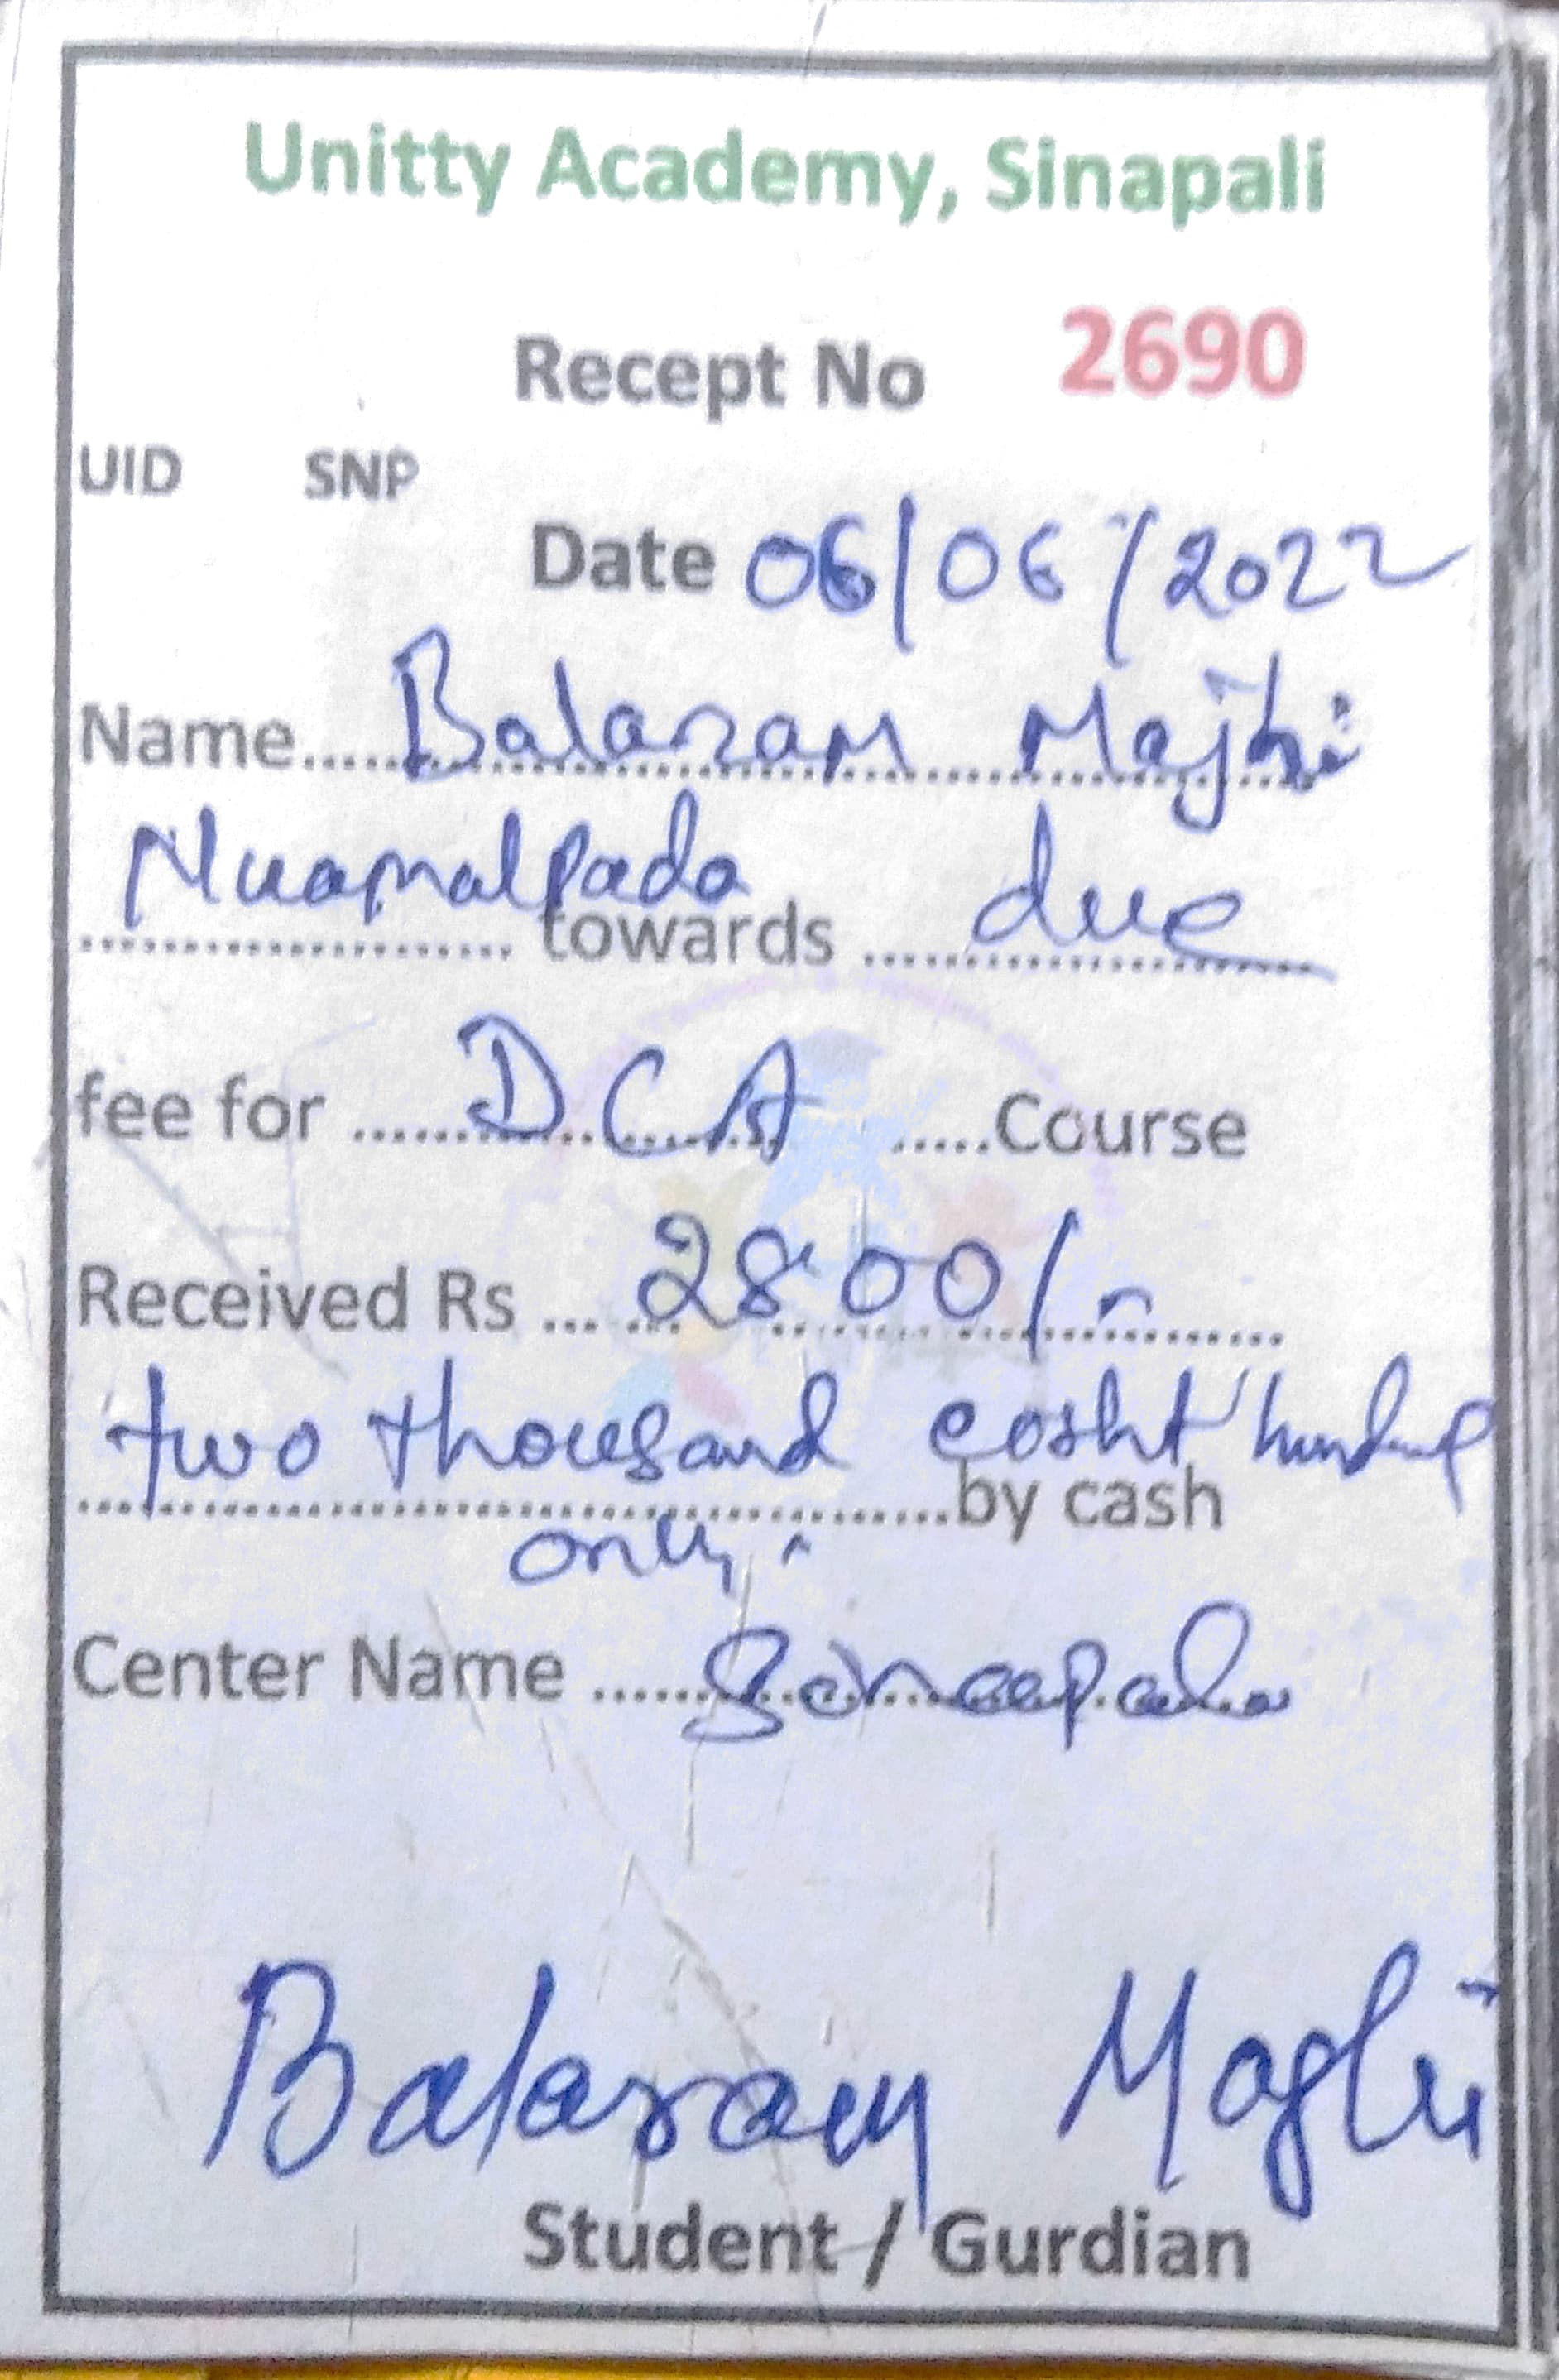 Unitty Academy, Sinapali
Recept No 2690
UID SNP
Date 06/06/2022
Name..... Balaram Majhi
Nuamalpada towards ..... due
fee for ..... DCA .....Course
Received Rs ... 2800/-
two thousand eight hundred
by cash
only.
Center Name .....
Balaram Majhi
Student / Gurdian